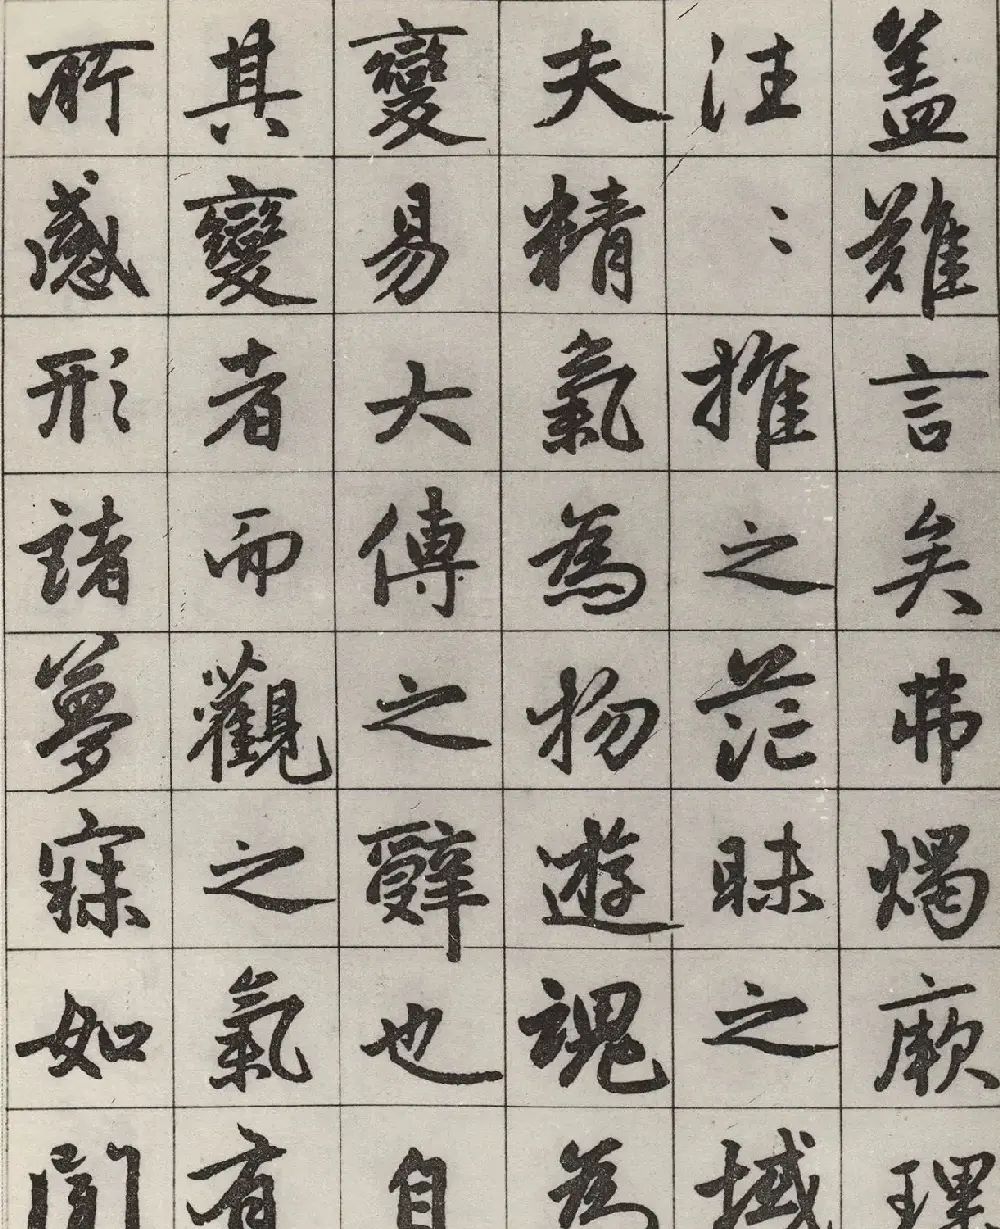 盖難言矣弗燭厥理
汪〻推之茫昧之域
夫精氣為物遊魂為
變易大傳之辭也自
其變者而觀之氣有
所感形諸夢寐如聞